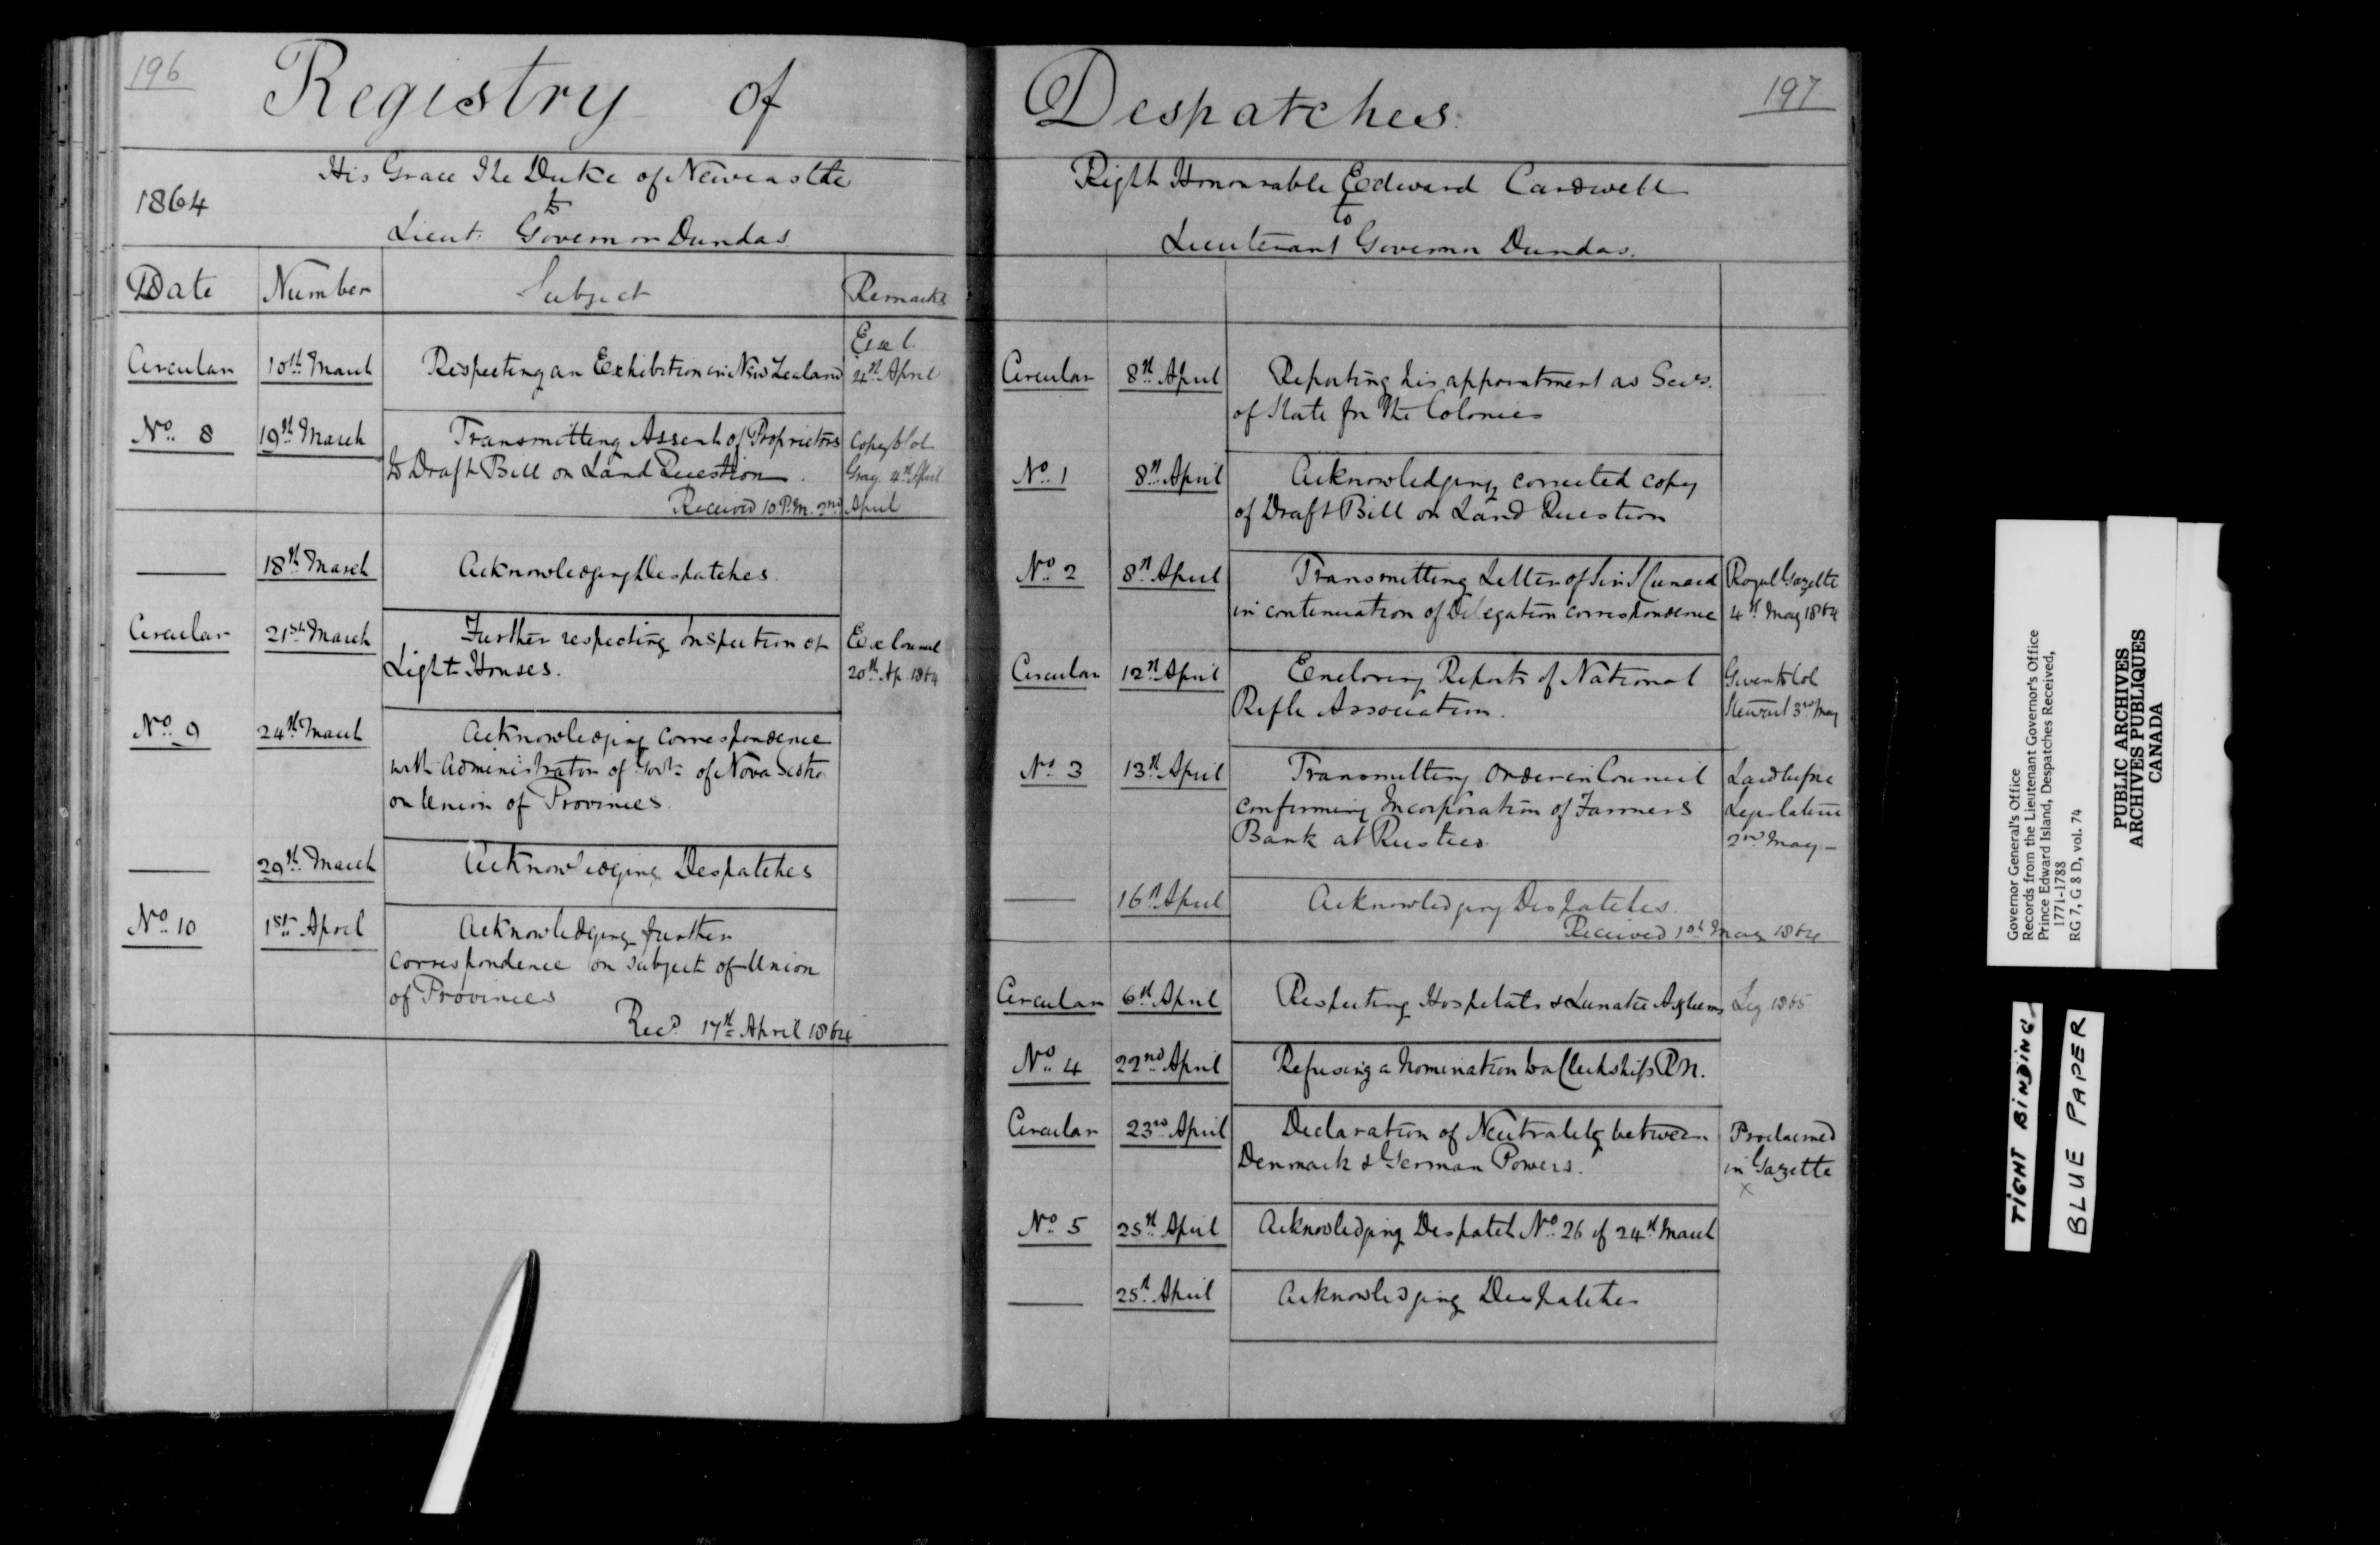 196
Registry of
1864
His Grace The Duke of Newcastle
to
Lieut. Governor Dundas
Date Number Subject Remarks
Circular 10th March Respecting an Exhibition in New Zealand 4th April
No. 8 19th March Transmitting Assent of Proprietors Copy to Col
to Draft Bill on Land Question. Gray 4th April
Received 10 P.M. 2nd April
18th March Acknowledging Despatches.
Circular 21st March Further respecting Inspection of Ex Council
Light Houses. 20th Ap. 1864
No. 9 24th March Acknowledging correspondence
with Administrator of Govt. of Nova Scotia
on Union of Provinces.
29th March Acknowledging Despatches
No. 10 1st April Acknowledging further
correspondence on subject of Union
of Provinces
Recd. 17th April 1864
197
Despatches.
Right Honourable Edward Cardwell
to
Lieutenant Governor Dundas.
Circular 8th April Reporting his appointment as Secy.
of State for the Colonies
No. 1 8th April Acknowledging corrected copy
of Draft Bill on Land Question
No. 2 8th April Transmitting Letter of Sir S Cunard Royal Gazette
in continuation of Delegation correspondence 4th May 1864
Circular 12th April Enclosing Reports of National Given to Col
Rifle Association. Stewart 3rd May
No. 3 13th April Transmitting Order in Council Laid before
confirming Incorporation of Farmers Legislature
Bank at Rustico. 2nd May
16th April Acknowledging Despatches.
Received 1st May 1864
Circular 6th April Respecting Hospitals & Lunatic Asylums Leg. 1865
No. 4 22nd April Refusing a nomination to a Clerkship R.N.
Circular 23rd April Declaration of Neutrality between Proclaimed
Denmark & German Powers. in Gazette
x
No. 5 25th April Acknowledging Despatch No. 26 of 24th March
25th April Acknowledging Despatches
Governor General's Office
Records from the Lieutenant Governor's Office
Prince Edward Island, Despatches Received,
1771-1788
RG 7, G 8 D, vol. 74
PUBLIC ARCHIVES
ARCHIVES PUBLIQUES
CANADA
TIGHT BINDING
BLUE PAPER